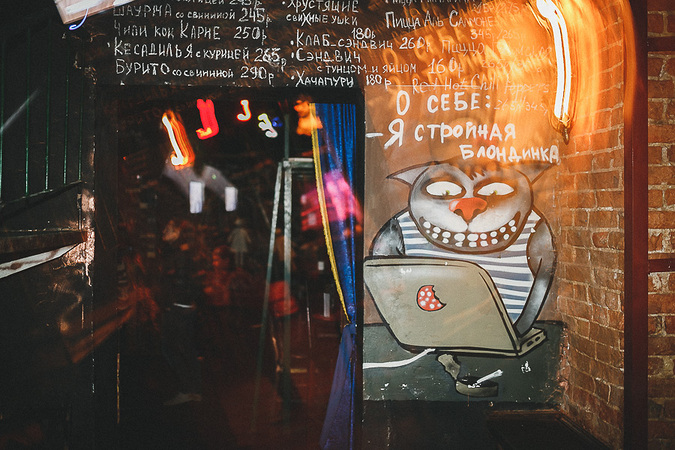 ШАУРМА со свининой 245р
Чили кон Карне 250р
Кесадилья с курицей 265р
Бурито со свининой 290р
Хрустящие
свиные ушки
Клаб-сэндвич 260р
Сэндвич
с тунцом и яйцом 160р
Хачапури 180р
Пицца
О СЕБЕ:
-Я стройная
блондинка